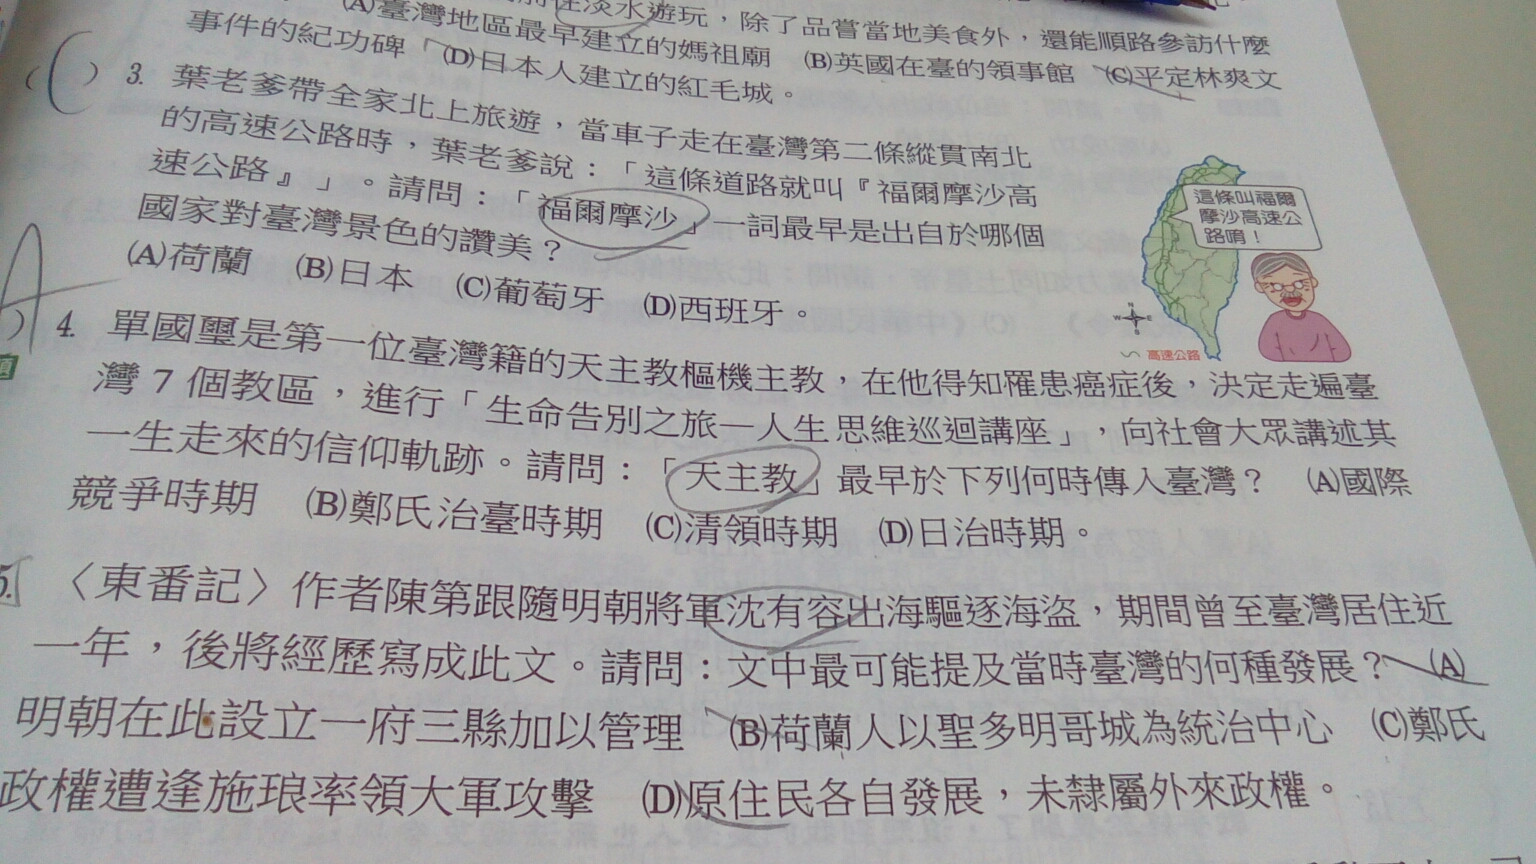 淡水遊玩，除了品嘗當地美食外，還能順路參訪什麼
(A)臺灣地區最早建立的媽祖廟 (B)英國在臺的領事館 (C)平定林爽文
事件的紀功碑 (D)日本人建立的紅毛城。
(C) 3. 葉老爹帶全家北上旅遊，當車子走在臺灣第二條縱貫南北
的高速公路時，葉老爹說：「這條道路就叫『福爾摩沙高
速公路』」。請問：「福爾摩沙」一詞最早是出自於哪個
國家對臺灣景色的讚美？
(A)荷蘭 (B)日本 (C)葡萄牙 (D)西班牙。
這條叫福爾
摩沙高速公
路唷！
N
W E
S
高速公路
A ) 4. 單國璽是第一位臺灣籍的天主教樞機主教，在他得知罹患癌症後，決定走遍臺
灣 7 個教區，進行「生命告別之旅—人生思維巡迴講座」，向社會大眾講述其
一生走來的信仰軌跡。請問：「天主教」最早於下列何時傳入臺灣？ (A)國際
競爭時期 (B)鄭氏治臺時期 (C)清領時期 (D)日治時期。
5. 〈東番記〉作者陳第跟隨明朝將軍沈有容出海驅逐海盜，期間曾至臺灣居住近
一年，後將經歷寫成此文。請問：文中最可能提及當時臺灣的何種發展？ (A)
明朝在此設立一府三縣加以管理 (B)荷蘭人以聖多明哥城為統治中心 (C)鄭氏
政權遭逢施琅率領大軍攻擊 (D)原住民各自發展，未隸屬外來政權。